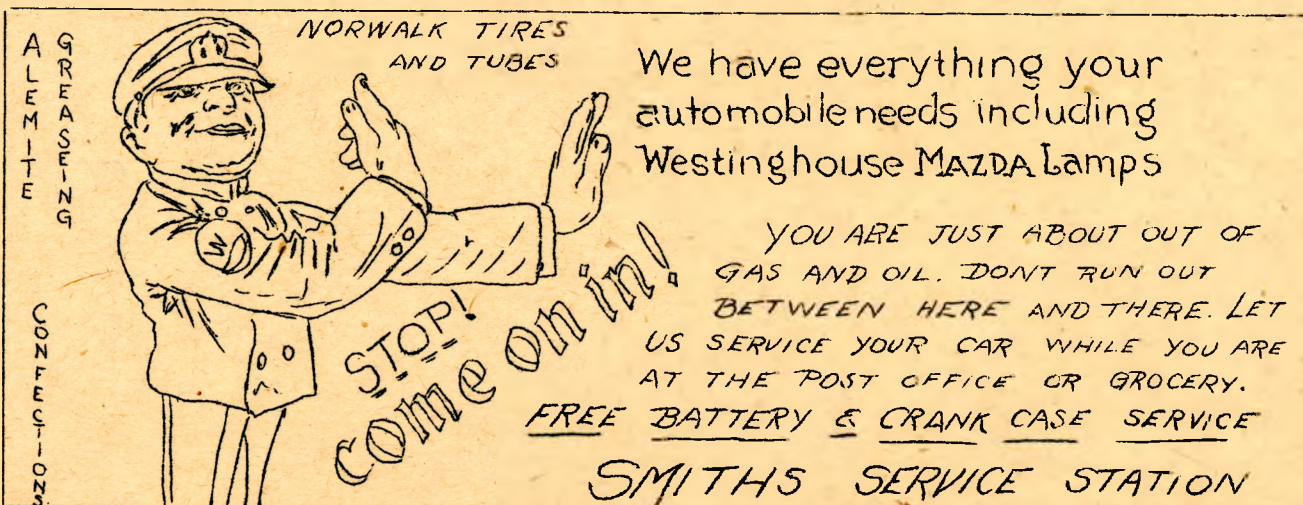 ALEMITE
GREASEING
CONFECTIONS
NORWALK TIRES
AND TUBES
W
STOP!
come on in!
We have everything your
automobile needs including
Westinghouse MAZDA Lamps
YOU ARE JUST ABOUT OUT OF
GAS AND OIL. DONT RUN OUT
BETWEEN HERE AND THERE. LET
US SERVICE YOUR CAR WHILE YOU ARE
AT THE POST OFFICE OR GROCERY.
FREE BATTERY & CRANK CASE SERVICE
SMITHS SERVICE STATION